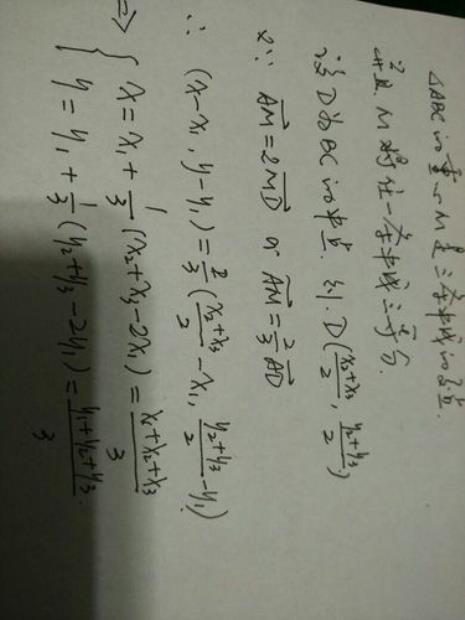 △ABC的重心M是三条中线的交点.
并且.M将任一条中线三等分.
设D为BC的中点.则.D(\frac{x₂+x₃}{2}, \frac{y₂+y₃}{2})
又∵ \overrightarrow{AM}=2\overrightarrow{MD} or \overrightarrow{AM}=\frac{2}{3}\overrightarrow{AD}
∴ (x-x₁, y-y₁)=\frac{2}{3}(\frac{x₂+x₃}{2}-x₁, \frac{y₂+y₃}{2}-y₁)
⇒ { x=x₁+\frac{1}{3}(x₂+x₃-2x₁)=\frac{x₁+x₂+x₃}{3}
y=y₁+\frac{1}{3}(y₂+y₃-2y₁)=\frac{y₁+y₂+y₃}{3}.